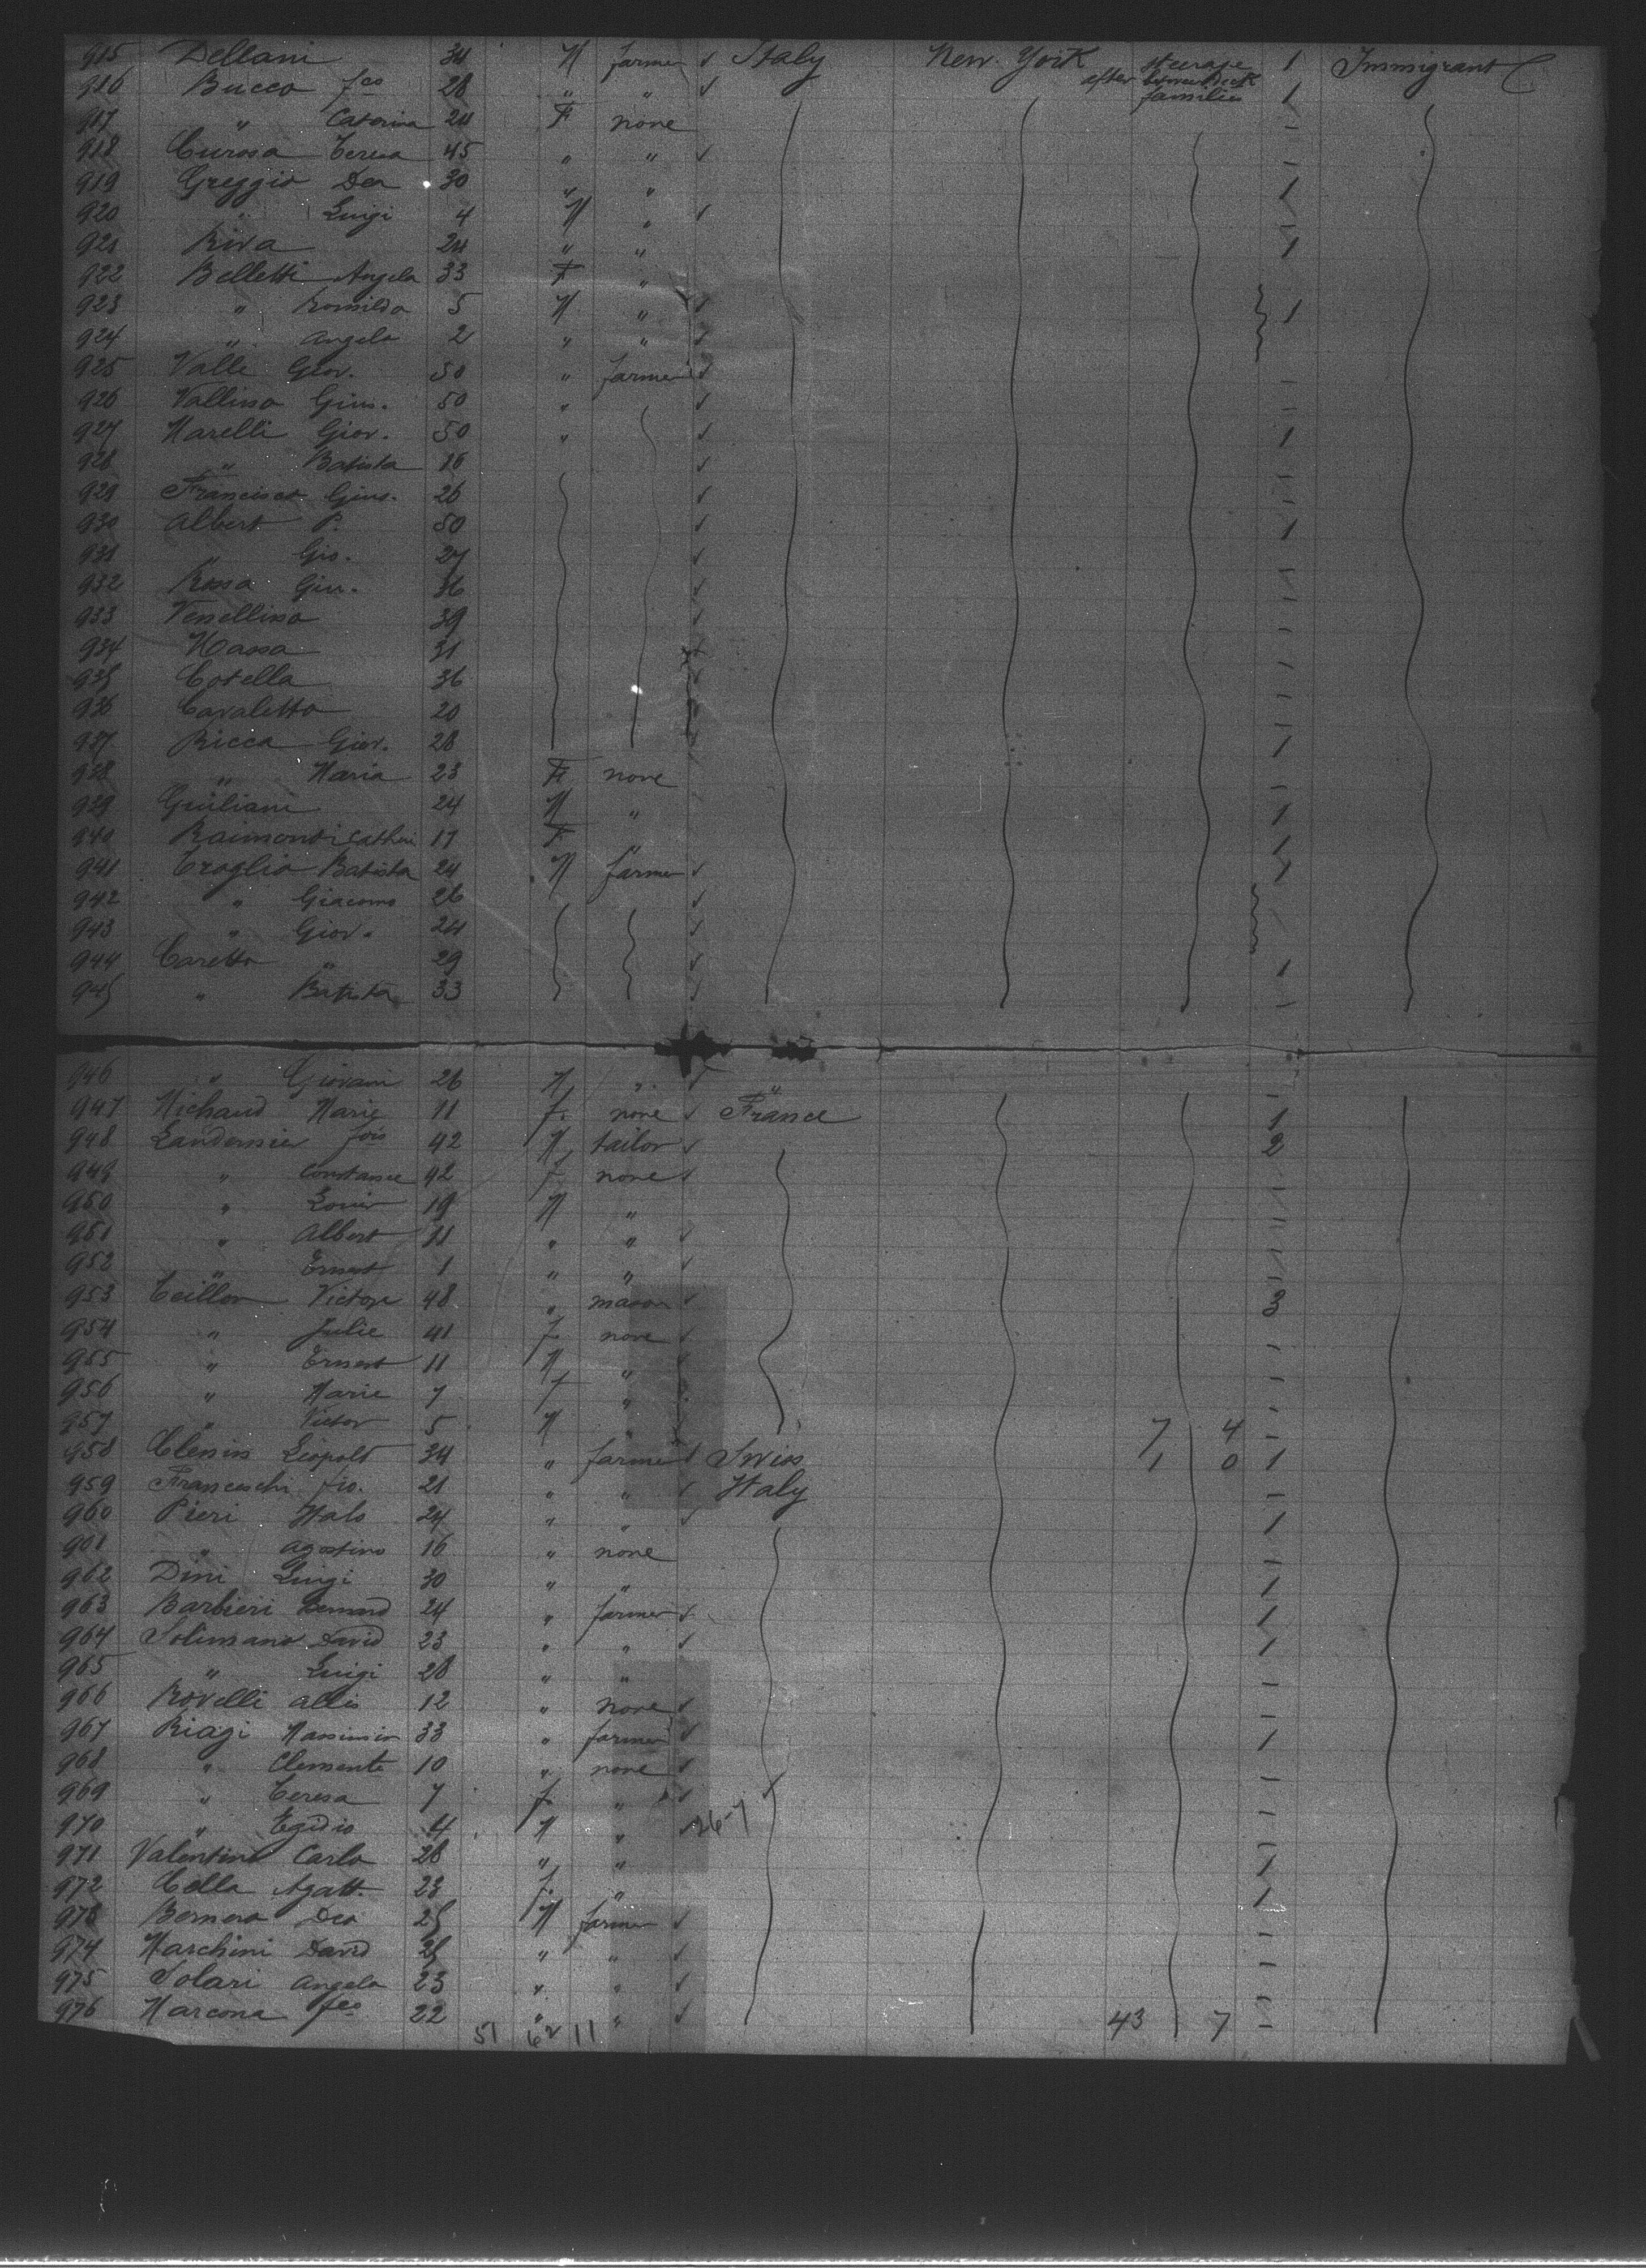 915 Dellani 34 M farmer Italy New-York steerage 1 Immigrant
916 Bucco fco 28 " " after between Deck families 1
917 " Caterina 24 F none -
918 Curosa Teresa 45 " " -
919 Greggio Den 30 " " 1
920 " Luigi 4 M " -
921 Riva 24 " " 1
922 Belletti Angela 33 F "
923 " Romilda 5 M " 1
924 " Angelo 2 " "
925 Valli Giov. 50 " farmer -
926 Vallino Gius. 50 " -
927 Marelli Giov. 50 " 1
928 " Batista 16 -
929 Francisco Gius. 26 -
930 Albert P. 50 1
931 " Gio. 27 -
932 Rossa Giu. 36 -
933 Venellino 39 -
934 Massa 31 -
935 Cotella 36 -
936 Cavaletto 20 -
937 Ricca Giov. 28 1
938 " Maria 23 F none -
939 Giuliani 24 M " 1
940 Raimonti Cathn 17 F " 1
941 Croglio Batista 24 M farmer 1
942 " Giacomo 26
943 " Giov. 24
944 Caretto " 29 1
945 " Batista 33 -
946 " Giovani 26 M " " -
947 Michaud Marie 11 f. none France 1
948 Landernier fois 42 M tailor 2
949 " Constance 42 f none -
950 " Louis 19 M " -
951 " Albert 11 " " -
952 " Ernest 1 " " -
953 Ceillon Victor 48 " mason 3
954 " Julie 41 f. none -
955 " Ernest 11 M " -
956 " Marie 7 f " -
957 " Victor 5 M " 7 4 -
958 Clenin Leopolt 34 " farmer Swiss 1 0 1
959 Franceschi fio. 21 " " Italy -
960 Pieri Italo 24 " " 1
961 " Agostino 16 " none -
962 Dini Luigi 30 " " 1
963 Barbieri Bernard 24 " farmer 1
964 Solimano David 23 " " 1
965 " Luigi 28 " " -
966 Rovelli 12 " none -
967 Biagi Massimin 33 " farmer 1
968 " Clemente 10 " none -
969 " Teresa 7 f. " -
970 " Egidio 4 M " 26-7 -
971 Valentini Carlo 28 " " 1
972 Cella Agatt. 23 f. " 1
973 Bernero Dea 25 M farmer -
974 Marchini David 25 " " -
975 Solari Angelo 23 " " -
976 Marcona fco 22 " " 43 7 -
51 62 11